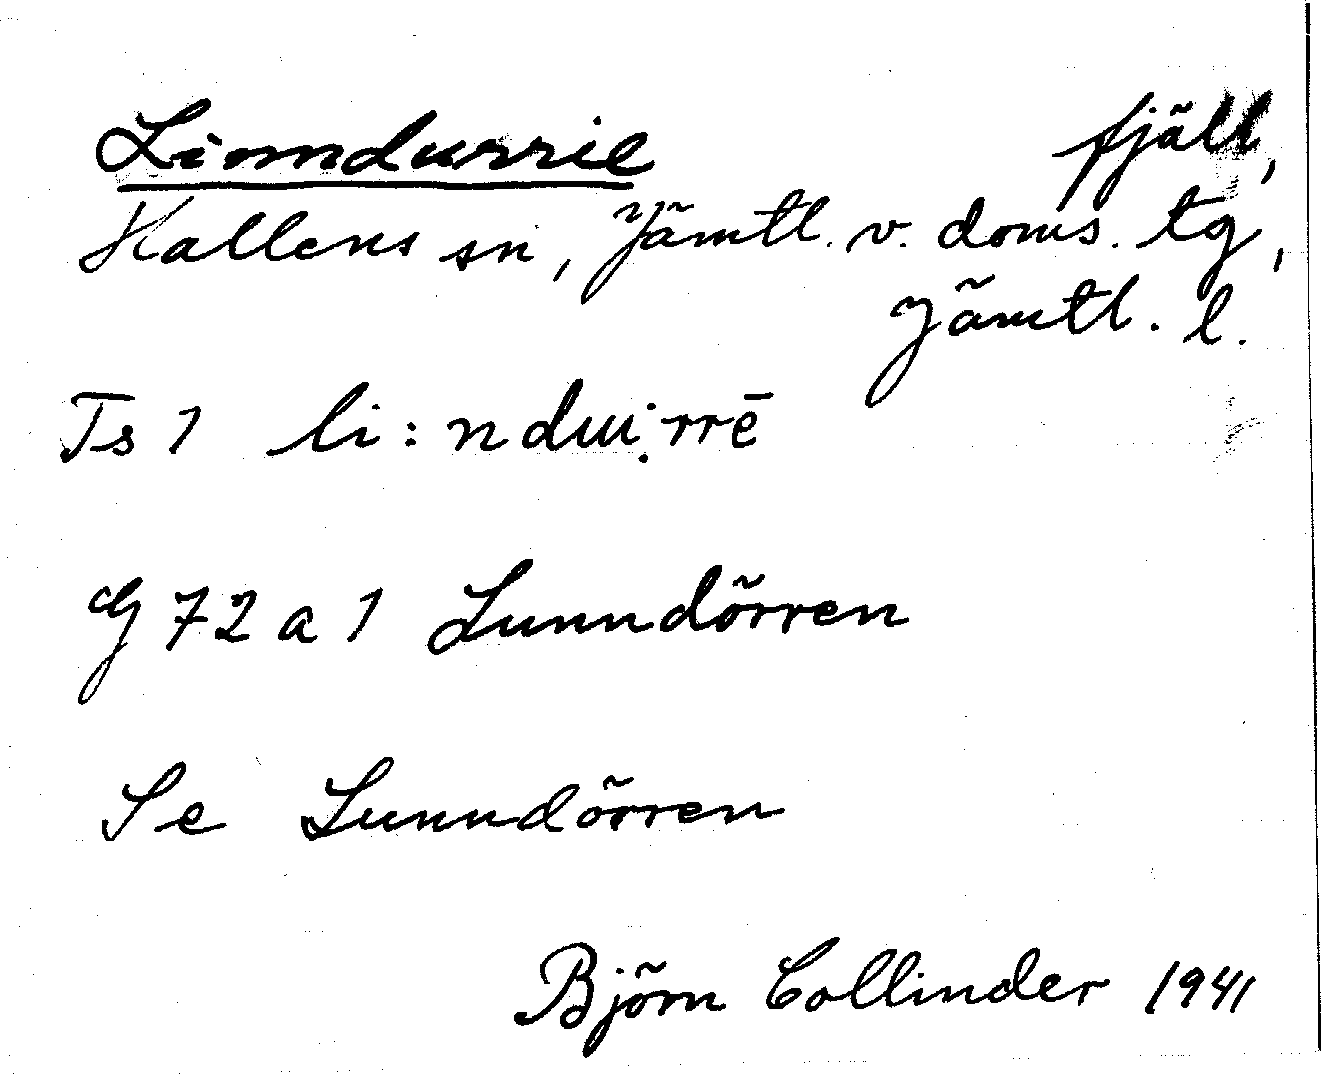 Liomdurrie fjäll,
Hallens sn, Jämtl. v. doms. tg,
Jämtl. l.
Ts 1 li:nduí.rrē
G 72 a 1 Lunndörren
Se Lunndörren
Björn Collinder 1941